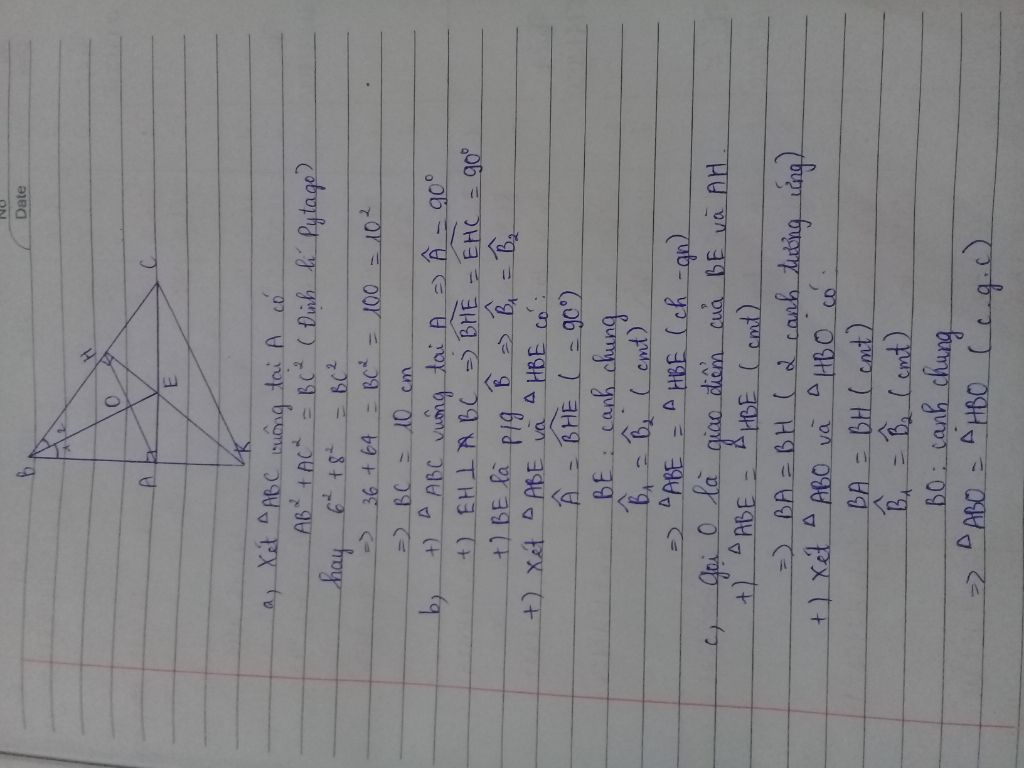 No
Date
B
H
C
O
1
2
E
A
K
a, Xét △ABC vuông tại A có
AB² + AC² = BC² (Định lí Pytago)
hay 6² + 8² = BC²
=> 36 + 64 = BC² = 100 = 10²
=> BC = 10 cm
b, +) △ABC vuông tại A => Â = 90°
+) EH ⊥ BC => BHE = EHC = 90°
+) BE là p/g B̂ => B̂₁ = B̂₂
+) Xét △ABE và △HBE có:
Â = BHE ( = 90°)
BE : cạnh chung
B̂₁ = B̂₂ (cmt)
=> △ABE = △HBE (ch - gn)
c, gọi O là giao điểm của BE và AH.
+) △ABE = △HBE (cmt)
=> BA = BH ( 2 cạnh tương ứng)
+) Xét △ABO và △HBO có:
BA = BH (cmt)
B̂₁ = B̂₂ (cmt)
BO : cạnh chung
=> △ABO = △HBO ( c.g.c)